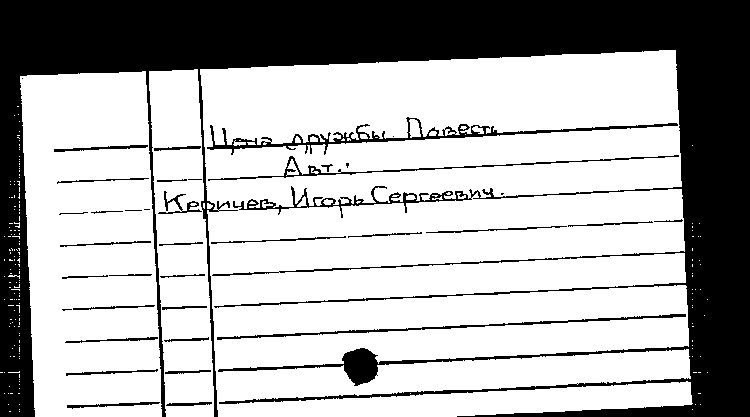 Цена дружбы. Повесть
Авт.:
Керичев, Игорь Сергеевич.